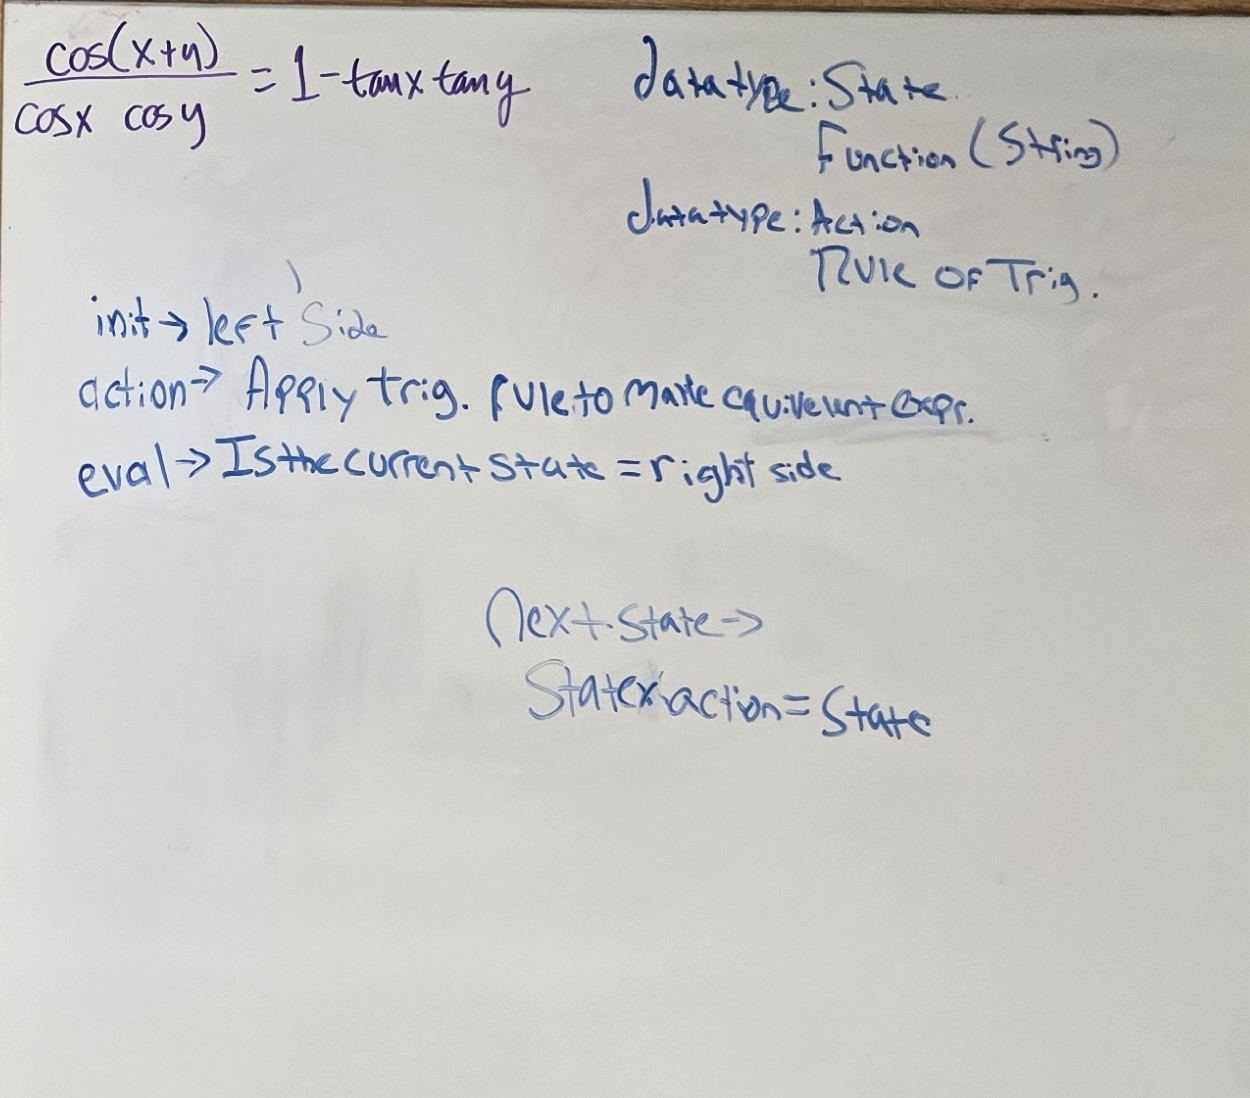 cos(x+y)
cosx cosy
= 1-tanx tany
datatype: State
Function (String)
datatype: Action
Rule OF Trig.
init → left Side
action → Apply trig. rule to make equivelent expr.
eval → Is the current state = right side
Next. State →
State x action = State